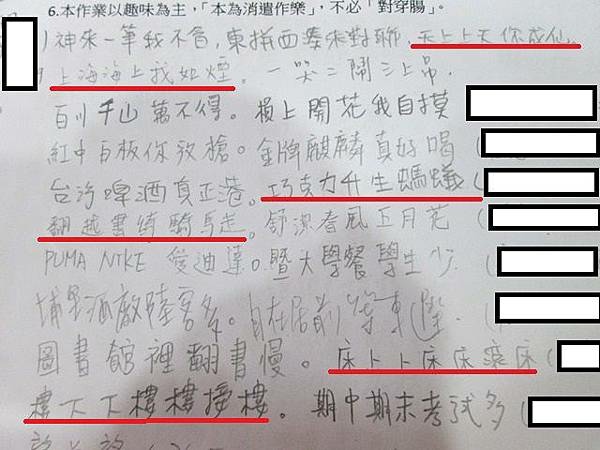 6.本作業以趣味為主，「本為消遣作樂」，不必「對穿腸」。
神來一筆我不會，東拼西湊來對聯，天上上天你成仙。
上海海上我如煙。一哭二鬧三上吊，
百川千山萬不得。槓上開花我自摸
紅中白板你放槍。金牌麒麟真好喝（
台灣啤酒真正港。巧克力升生螞蟻（
翻越書綺騎馬走。舒潔春風五月花（
PUMA NIKE 愛迪達。暨大學餐學生少（
埔里酒廠陸客多。自在居前等車
圖書館裡翻書慢。床上上床床滾床（
樓下下樓樓接樓。期中期末考試多（